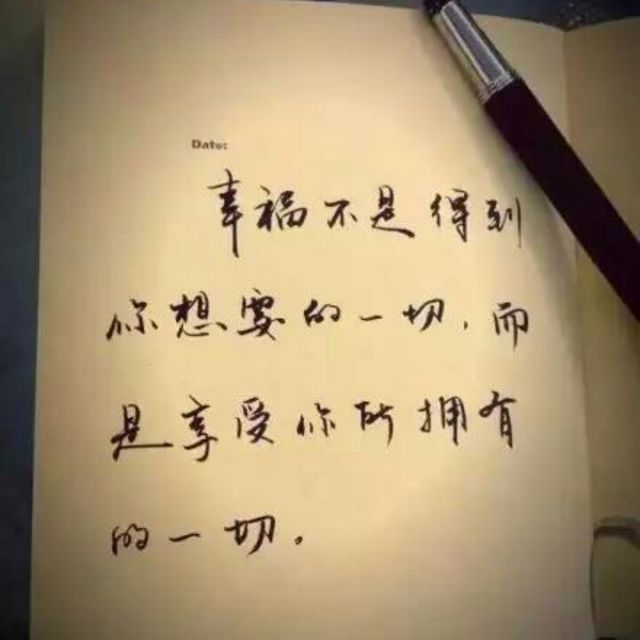 Date:
幸福不是得到
你想要的一切,而
是享受你所拥有
的一切。